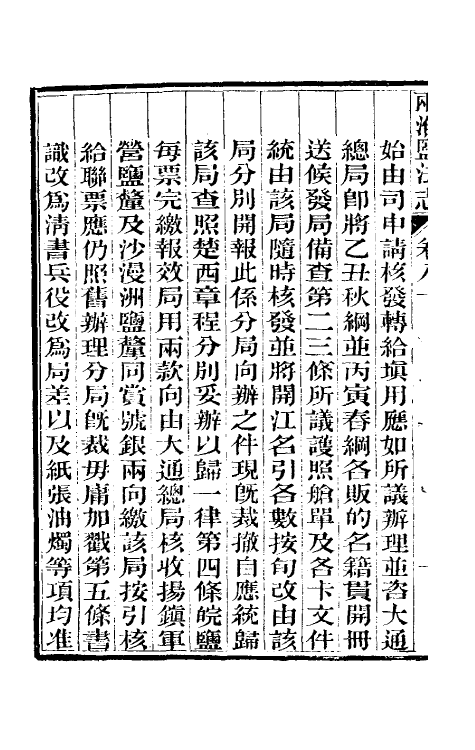 兩淮鹽法志
卷八十
始由司申請核發轉給塡用應如所議辦理並咨大通
總局卽將乙丑秋綱並丙寅春綱各販的名籍貫開冊
送候發局備查第二三條所議護照艙單及各卡文件
統由該局隨時核發並將開江名引各數按旬改由該
局分別開報此係分局向辦之件現旣裁撤自應統歸
該局查照楚西章程分別妥辦以歸一律第四條皖鹽
每票完繳報效局用兩款向由大通總局核收揚鎭軍
營鹽釐及沙漫洲鹽釐同賞號銀兩向繳該局按引核
給聯票應仍照舊辦理分局旣裁毋庸加戳第五條書
識改爲淸書兵役改爲局差以及紙張油燭等項均准